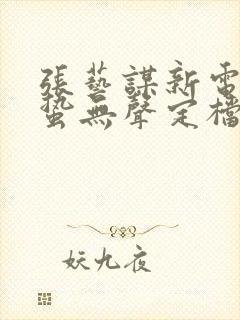 張藝謀新電
蟄無聲定檔
妖九夜